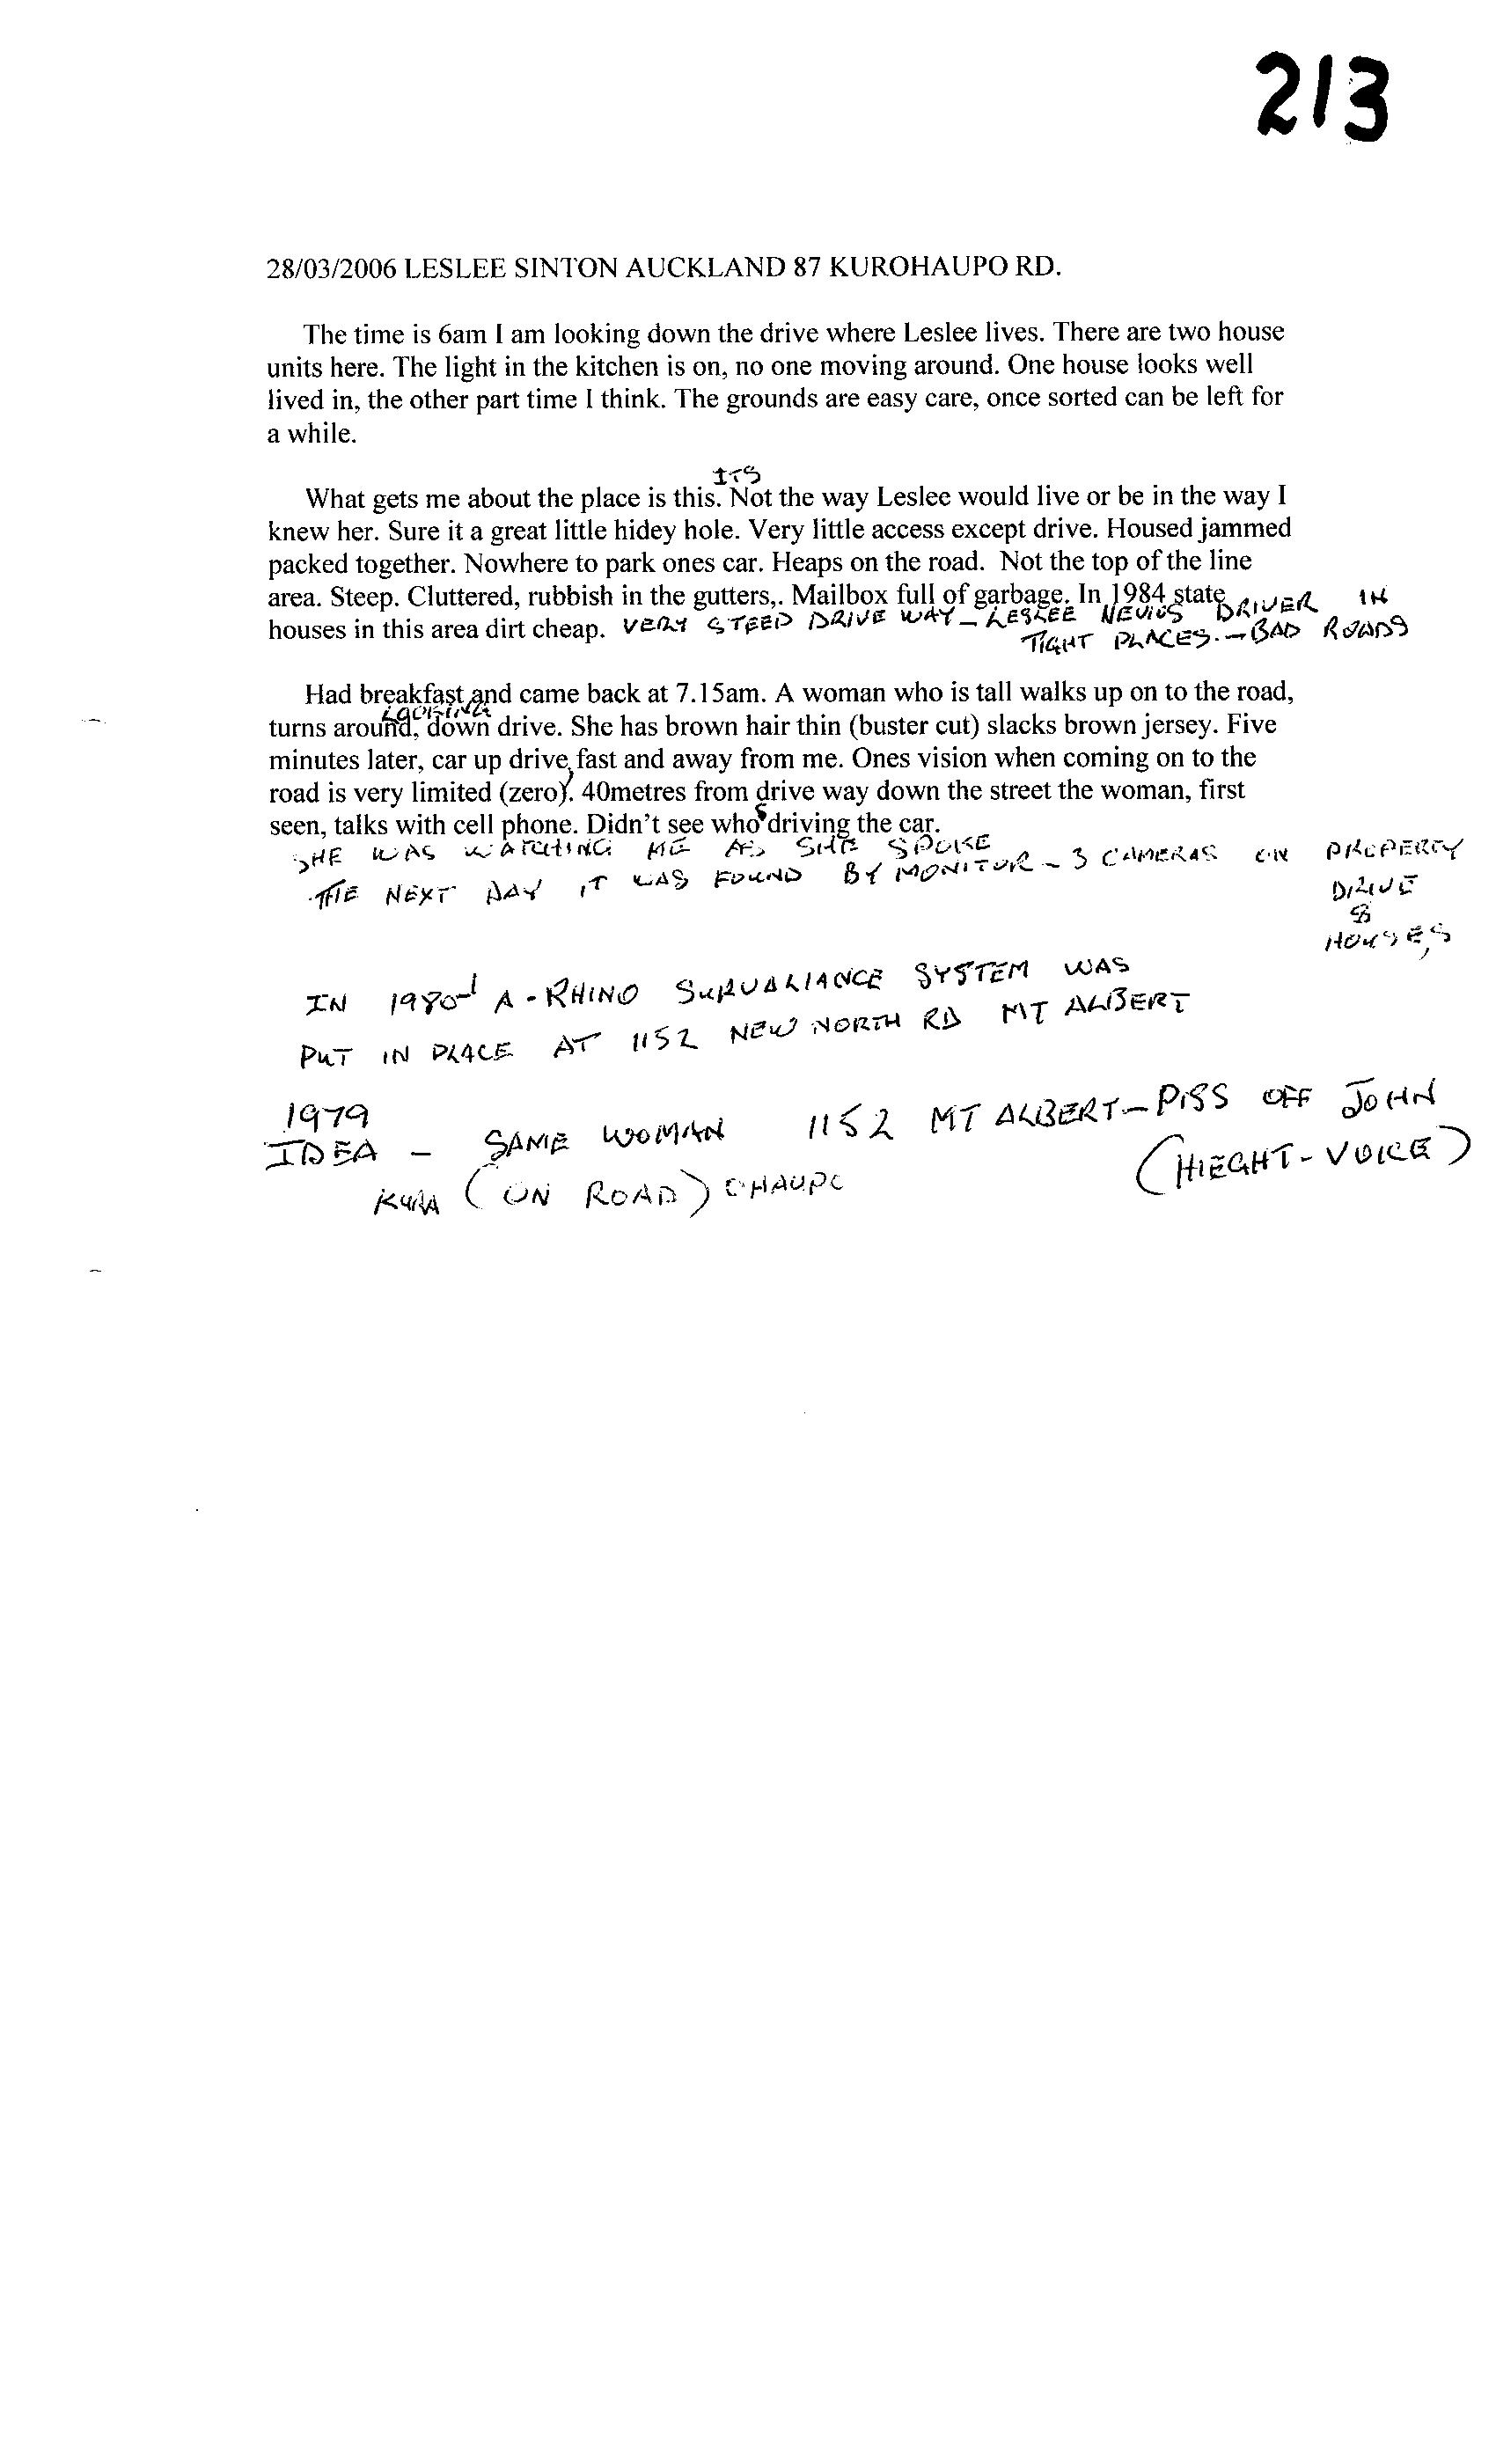 213
28/03/2006 LESLEE SINTON AUCKLAND 87 KUROHAUPO RD.
The time is 6am I am looking down the drive where Leslee lives. There are two house
units here. The light in the kitchen is on, no one moving around. One house looks well
lived in, the other part time I think. The grounds are easy care, once sorted can be left for
a while.
ITS
What gets me about the place is this. Not the way Leslee would live or be in the way I
knew her. Sure it a great little hidey hole. Very little access except drive. Housed jammed
packed together. Nowhere to park ones car. Heaps on the road. Not the top of the line
area. Steep. Cluttered, rubbish in the gutters,. Mailbox full of garbage. In 1984 state
houses in this area dirt cheap. VERY STEEP DRIVE WAY - LESLEE DRIVER IN
TIGHT PLACES. - BAD ROADS
Had breakfast and came back at 7.15am. A woman who is tall walks up on to the road,
LOOKING
turns around, down drive. She has brown hair thin (buster cut) slacks brown jersey. Five
minutes later, car up drive, fast and away from me. Ones vision when coming on to the
road is very limited (zero). 40metres from drive way down the street the woman, first
seen, talks with cell phone. Didn't see who s driving the car.
SHE WAS WATCHING ME AS SHE SPOKE
THE NEXT DAY IT WAS FOUND BY MONITOR - 3 CAMERAS ON PROPERTY
DRIVE
&
HOUSES,
IN 1980-1 A - RHINO SURVALIANCE SYSTEM WAS
PUT IN PLACE AT 1152 NEW NORTH RD MT ALBERT
1979
IDEA - SAME WOMAN 1152 MT ALBERT - PISS OFF JOHN
KURA (ON ROAD) OHAUPO (HIEGHT - VOICE)